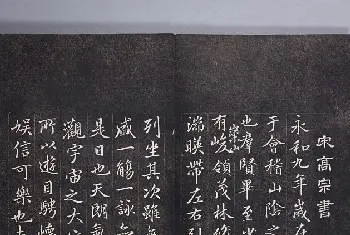 宋高宗書
永和九年歲在
于會稽山陰之
也羣賢畢至少
有崇山峻領茂林脩
湍暎帶左右引
列坐其次雖無
盛一觴一詠亦
是日也天朗氣
觀宇宙之大
所以遊目騁懷
娛信可樂也